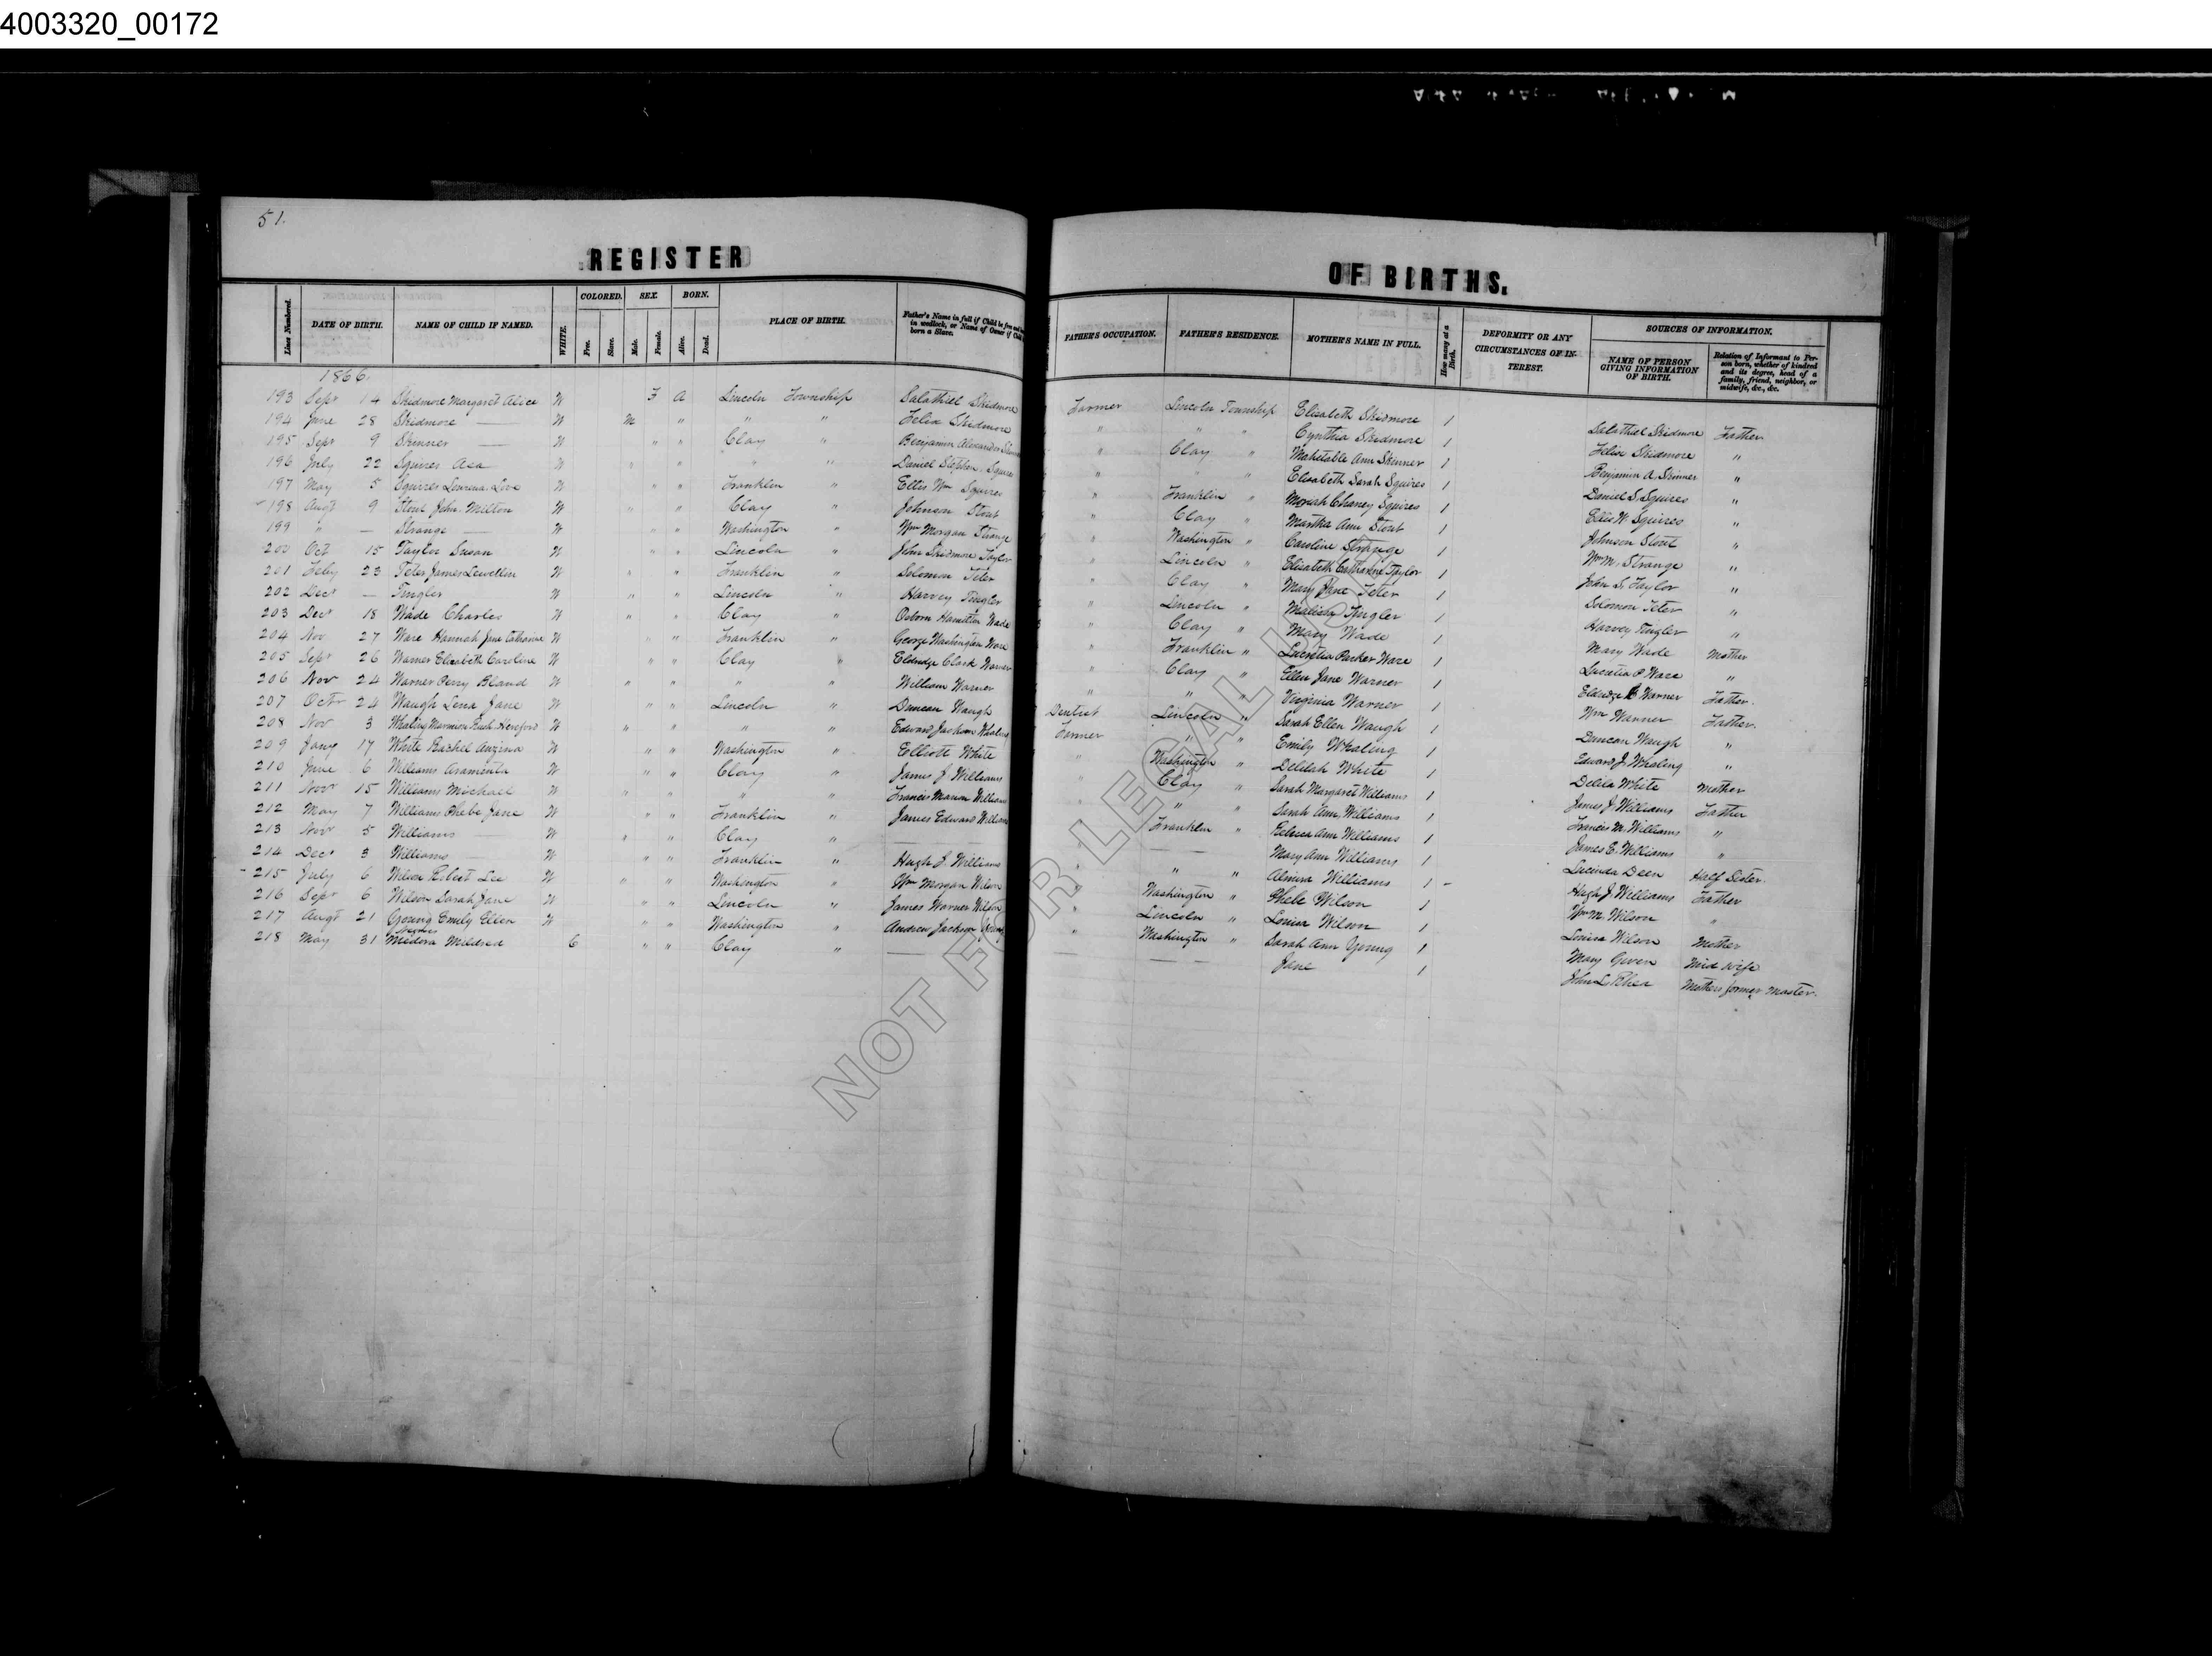 4003320_00172
51.
REGISTER
OF BIRTHS.
Lines Numbered.
DATE OF BIRTH.
NAME OF CHILD IF NAMED.
WHITE.
COLORED.
Free.
Slave.
SEX.
Male.
Female.
BORN.
Alive.
Dead.
PLACE OF BIRTH.
Father's Name in full if Child be free and
in wedlock, or Name of Owner if Child
born a Slave.
FATHER'S OCCUPATION.
FATHER'S RESIDENCE.
MOTHER'S NAME IN FULL.
How many at a Birth.
DEFORMITY OR ANY
CIRCUMSTANCES OF IN-
TEREST.
SOURCES OF INFORMATION.
NAME OF PERSON
GIVING INFORMATION
OF BIRTH.
Relation of Informant to Per-
son born, whether of kindred
and its degree, head of a
family, friend, neighbor, or
midwife, &c., &c.
1866.
193 Sept 14 Skidmore Margaret Alice W F A Lincoln Township Salathiel Skidmore Farmer Lincoln Township Elisabeth Skidmore 1 Salathiel Skidmore Father
194 June 28 Skidmore — W M " " " Felix Skidmore " " " Cynthia Skidmore 1 Felix Skidmore "
195 Sept 9 Skinner — W " " Clay " Benjamin Alexander " Clay " Mahetable Ann Skinner 1 Benjamin A. Skinner "
196 July 22 Squires Asa W " " " " Daniel Stephen Squires " " " Elisabeth Sarah Squires 1 Daniel S. Squires "
197 May 5 Squires Love W " " Franklin " Ellis Wm Squires " Franklin " Chaney Squires 1 Ellis W. Squires "
198 Augt 9 Stout John Milton W " " Clay " Johnson Stout " Clay " Martha Ann Stout 1 Johnson Stout "
199 " — Strange — W " " Washington " Wm Morgan Strange " Washington " Caroline Strange 1 Wm M. Strange "
200 Oct 15 Taylor Susan W " " Lincoln " John Skidmore Taylor " Lincoln " Elisabeth Catharine Taylor 1 John S. Taylor "
201 Feby 23 Teter James Lewellin W " " Franklin " Solomon Teter " Clay " Mary Jane Teter 1 Solomon Teter "
202 Dect — Tingler W " " Lincoln " Harvey Tingler " Lincoln " Tingler 1 Harvey Tingler "
203 Dect 18 Wade Charles W " " Clay " Osborn Hamilton Wade " Clay " Mary Wade 1 Mary Wade Mother
204 Nov 27 Ware Hannah Jane Catharine W " " Franklin " George Washington Ware " Franklin " Lucretia Parker Ware 1 Lucretia P Ware "
205 Sept 26 Warner Elisabeth Caroline W " " Clay " Eldridge Clark Warner " Clay " Ellen Jane Warner 1 Eldridge C Warner Father.
206 Nov 24 Warner Perry Bland W " " " " William Warner " " " Virginia Warner 1 Wm Warner Father.
207 Octr 24 Waugh Lena Jane W " " Lincoln " Duncan Waugh Dentist Lincoln " Sarah Ellen Waugh 1 Duncan Waugh "
208 Nov 3 Whaling Marmion Rush Hereford W " " " " Edward Jackson Whaling Farmer " " Emily Whaling 1 Edward J. Whaling "
209 Jany 17 White Rachel W " " Washington " Elliott White " Washington " Delilah White 1 Delila White Mother
210 June 6 Williams Araminta W " " Clay " James J. Williams " Clay " Sarah Margaret Williams 1 James J. Williams Father
211 Novr 15 Williams Michael W " " " " Francis Marion Williams " " Sarah Ann Williams 1 Francis M. Williams "
212 May 7 Williams Phebe Jane W " " Franklin " James Edward Williams Franklin " Rebecca Ann Williams 1 James E. Williams "
213 Novr 5 Williams — W " " Clay " — — — Mary Ann Williams 1 Lucinda Deen Half Sister.
214 Dect 3 Williams — W " " Franklin " Hugh J. Williams " " " Almira Williams 1 Hugh J Williams Father
215 July 6 Wilson Robert Lee W " " Washington " Wm Morgan Wilson " Washington " Phebe Wilson 1 Wm M. Wilson "
216 Sept 6 Wilson Sarah Jane W " " Lincoln " James Warner Wilson " Lincoln " Louisa Wilson 1 Louisa Wilson Mother
217 Augt 21 Young Emily Ellen W " " Washington " Andrew Jackson Young " Washington " Sarah Ann Young 1 Mary Given Mid wife
218 May 31 Medora Mildred C " " Clay " — — — Jane 1 John L. Rhea Mothers former Master.
NOT FOR LEGAL USE